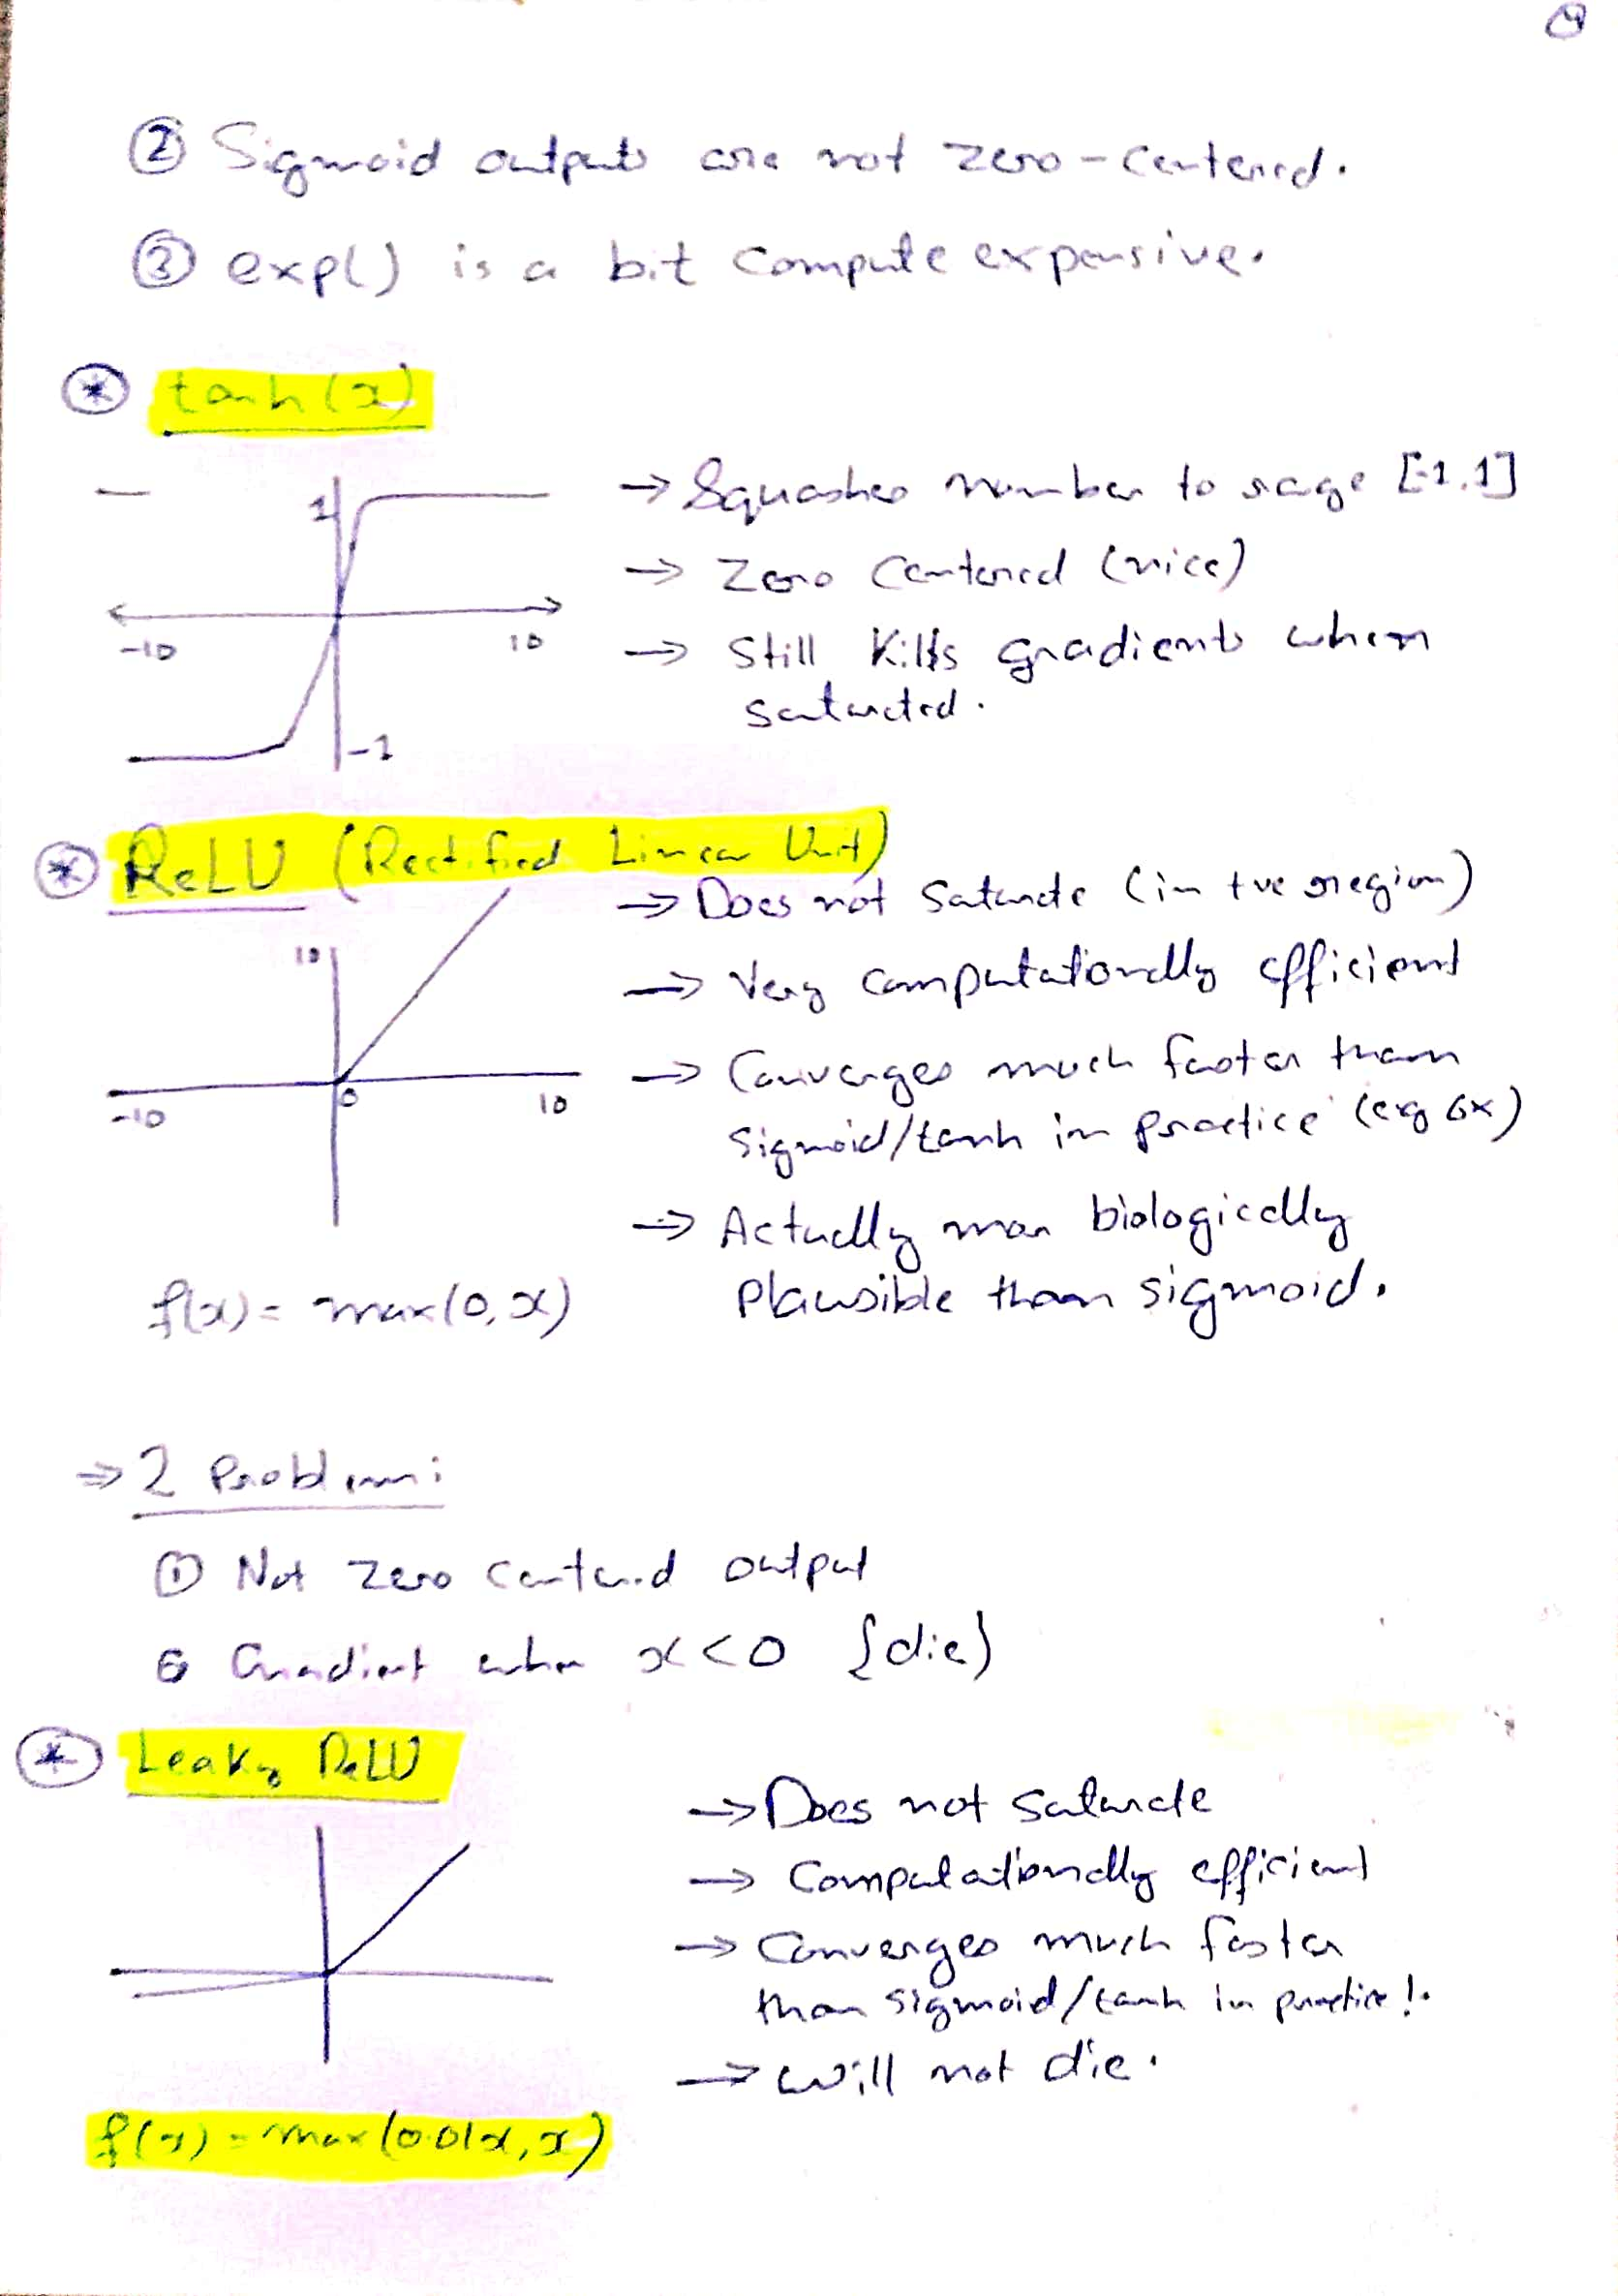 ② Sigmoid outputs are not zero-centered.
③ exp() is a bit compute expensive.
⊛ tanh(x)
1
-10
10
-1
→ Squashes number to rage [-1,1]
→ Zero Centered (nice)
→ Still Kills gradients when
saturated.
⊛ ReLU (Rectified Linear Unit)
10
-10
0
10
f(x) = max(0,x)
→ Does not Saturate (in +ve region)
→ Very computationally efficient
→ Converges much faster than
sigmoid/tanh in practice (eg 6x)
→ Actually more biologically
plausible than sigmoid.
⇒ 2 Problem:
① Not zero centered output
Gradient when x<0 {die)
⊛ Leaky ReLU
f(x) = max(0.01x,x)
→ Does not saturate
→ Computationally efficient
→ Converges much faster
than sigmoid/tanh in practice!.
→ will not die.